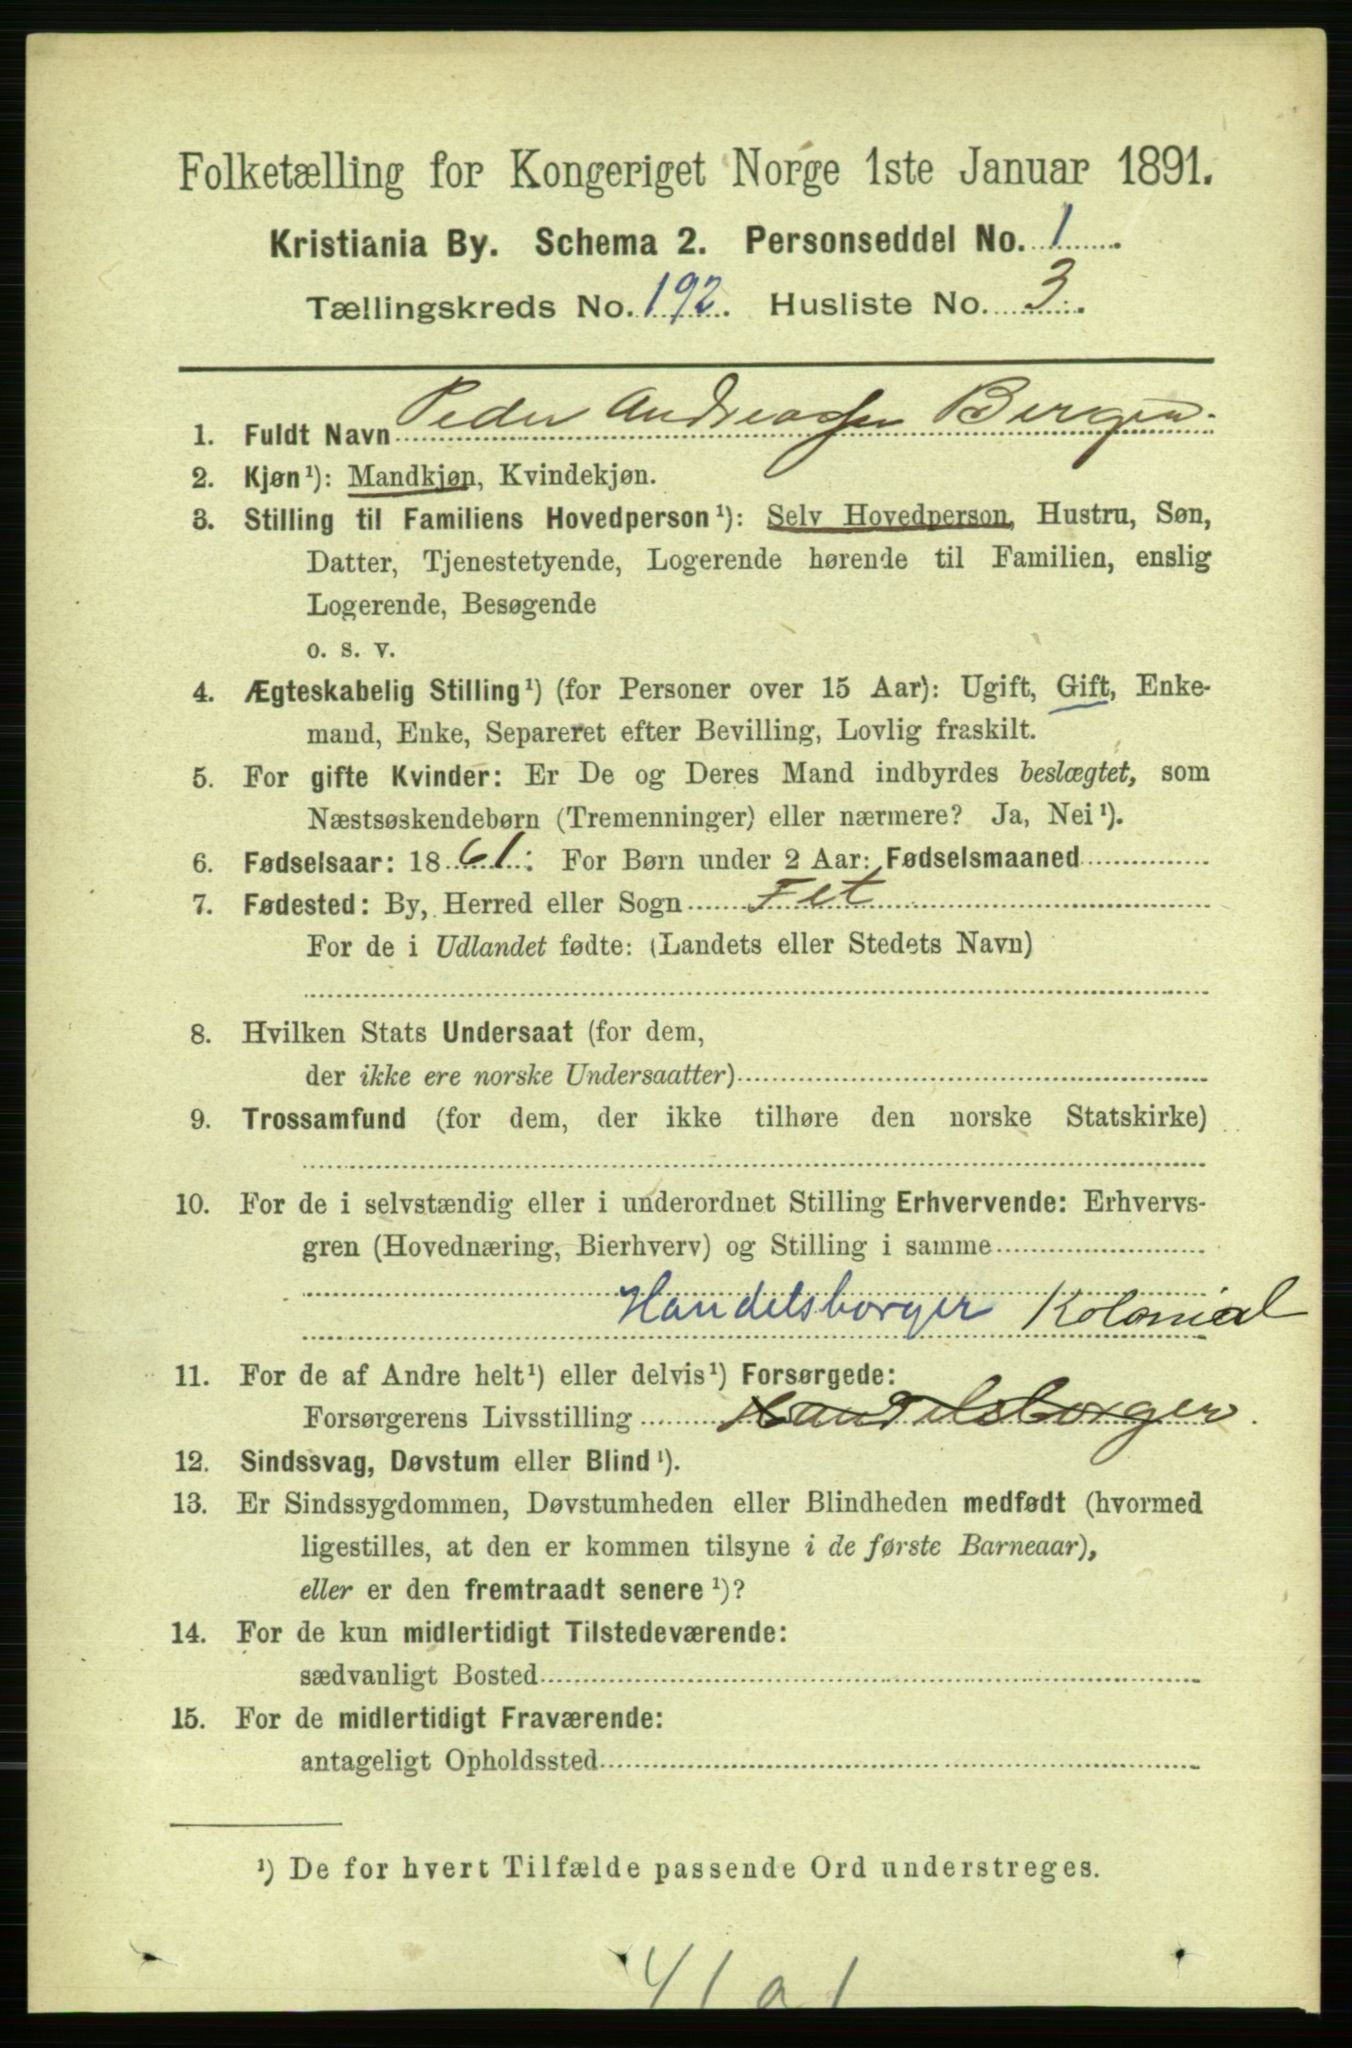 Folketælling for Kongeriget Norge 1ste Januar 1891.
Kristiania By. Schema 2. Personseddel No. 1.
Tællingskreds No. 192. Husliste No. 3.
1. Fuldt Navn Peder Andreassen Bergen.
2. Kjøn¹): Mandkjøn, Kvindekjøn.
3. Stilling til Familiens Hovedperson¹): Selv Hovedperson, Hustru, Søn,
Datter, Tjenestetyende, Logerende hørende til Familien, enslig
Logerende, Besøgende
o. s. v.
4. Ægteskabelig Stilling¹) (for Personer over 15 Aar): Ugift, Gift, Enke-
mand, Enke, Separeret efter Bevilling, Lovlig fraskilt.
5. For gifte Kvinder: Er De og Deres Mand indbyrdes beslægtet, som
Næstsøskendebørn (Tremenninger) eller nærmere? Ja, Nei¹).
6. Fødselsaar: 1861. For Børn under 2 Aar: Fødselsmaaned
7. Fødested: By, Herred eller Sogn Fet
For de i Udlandet fødte: (Landets eller Stedets Navn)
8. Hvilken Stats Undersaat (for dem,
der ikke ere norske Undersaatter)
9. Trossamfund (for dem, der ikke tilhøre den norske Statskirke)
10. For de i selvstændig eller i underordnet Stilling Erhvervende: Erhvervs-
gren (Hovednæring, Bierhverv) og Stilling i samme
Handelsborger Kolonial
11. For de af Andre helt¹) eller delvis¹) Forsørgede:
Forsørgerens Livsstilling Handelsborger.
12. Sindssvag, Døvstum eller Blind¹).
13. Er Sindssygdommen, Døvstumheden eller Blindheden medfødt (hvormed
ligestilles, at den er kommen tilsyne i de første Barneaar),
eller er den fremtraadt senere¹)?
14. For de kun midlertidigt Tilstedeværende:
sædvanligt Bosted
15. For de midlertidigt Fraværende:
antageligt Opholdssted
¹) De for hvert Tilfælde passende Ord understreges.
41 a 1